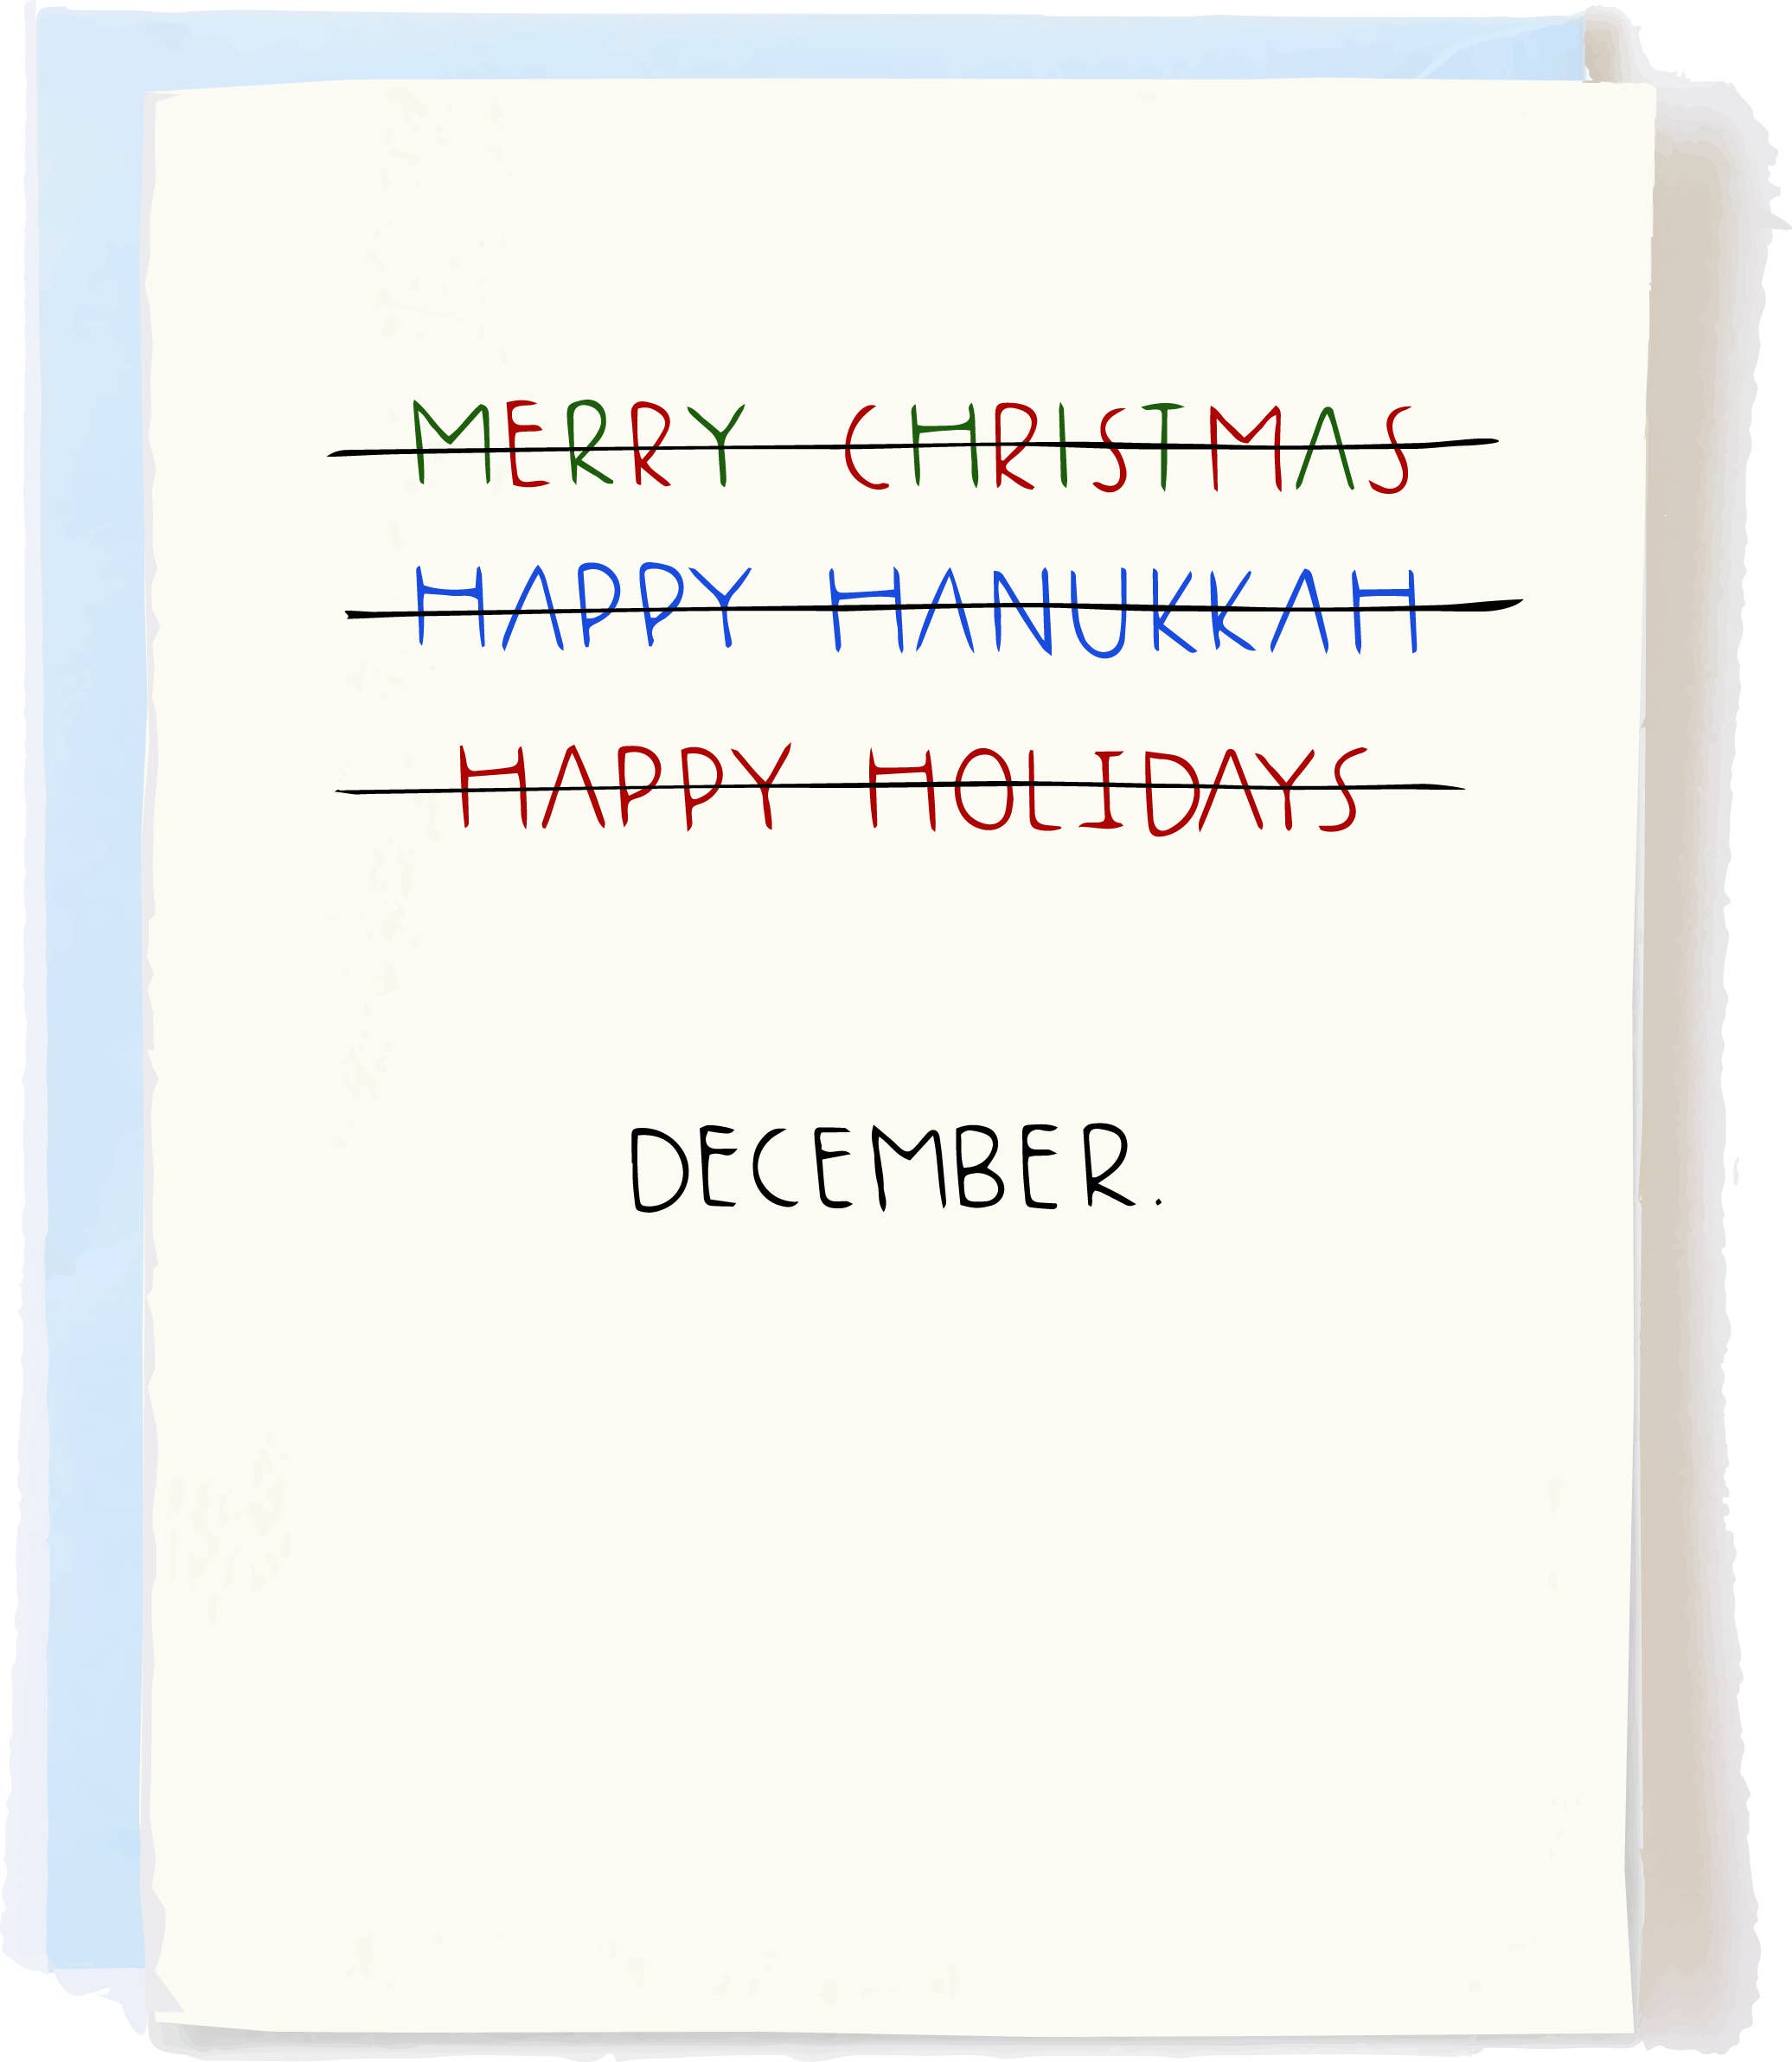 MERRY CHRISTMAS
HAPPY HANUKKAH
HAPPY HOLIDAYS
DECEMBER.